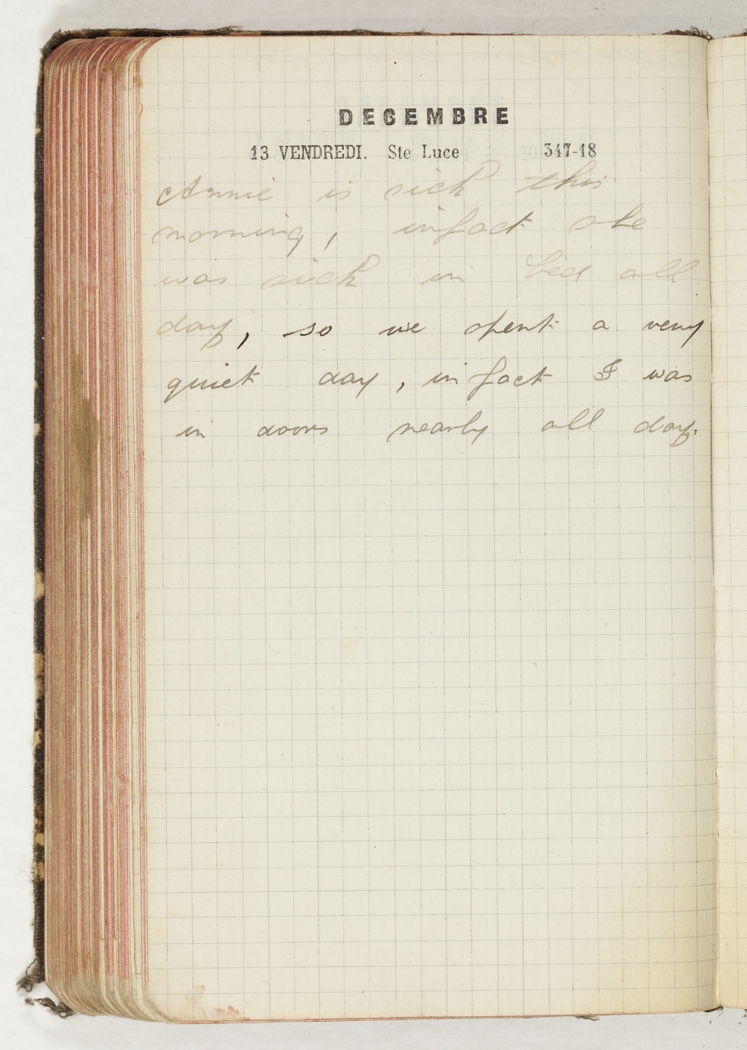 DECEMBRE
13 VENDREDI. Ste Luce 347-18
Annie is sick this
morning, infact she
was sick in bed all
day, so we spent a very
quiet day, infact I was
in doors nearly all day.